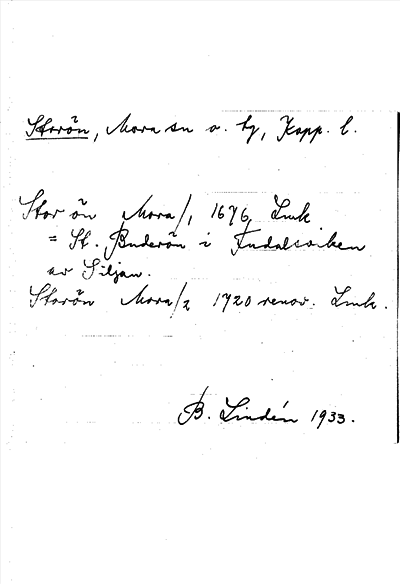 Storön, Mora sn o. hg, Kopp. l.
Stor ön Mora/1 1676 Lmk
= St. Buderön i Fudalsviken
av Siljan.
Storön Mora/2 1720 renov. Lmk.
B. Lindén 1933.